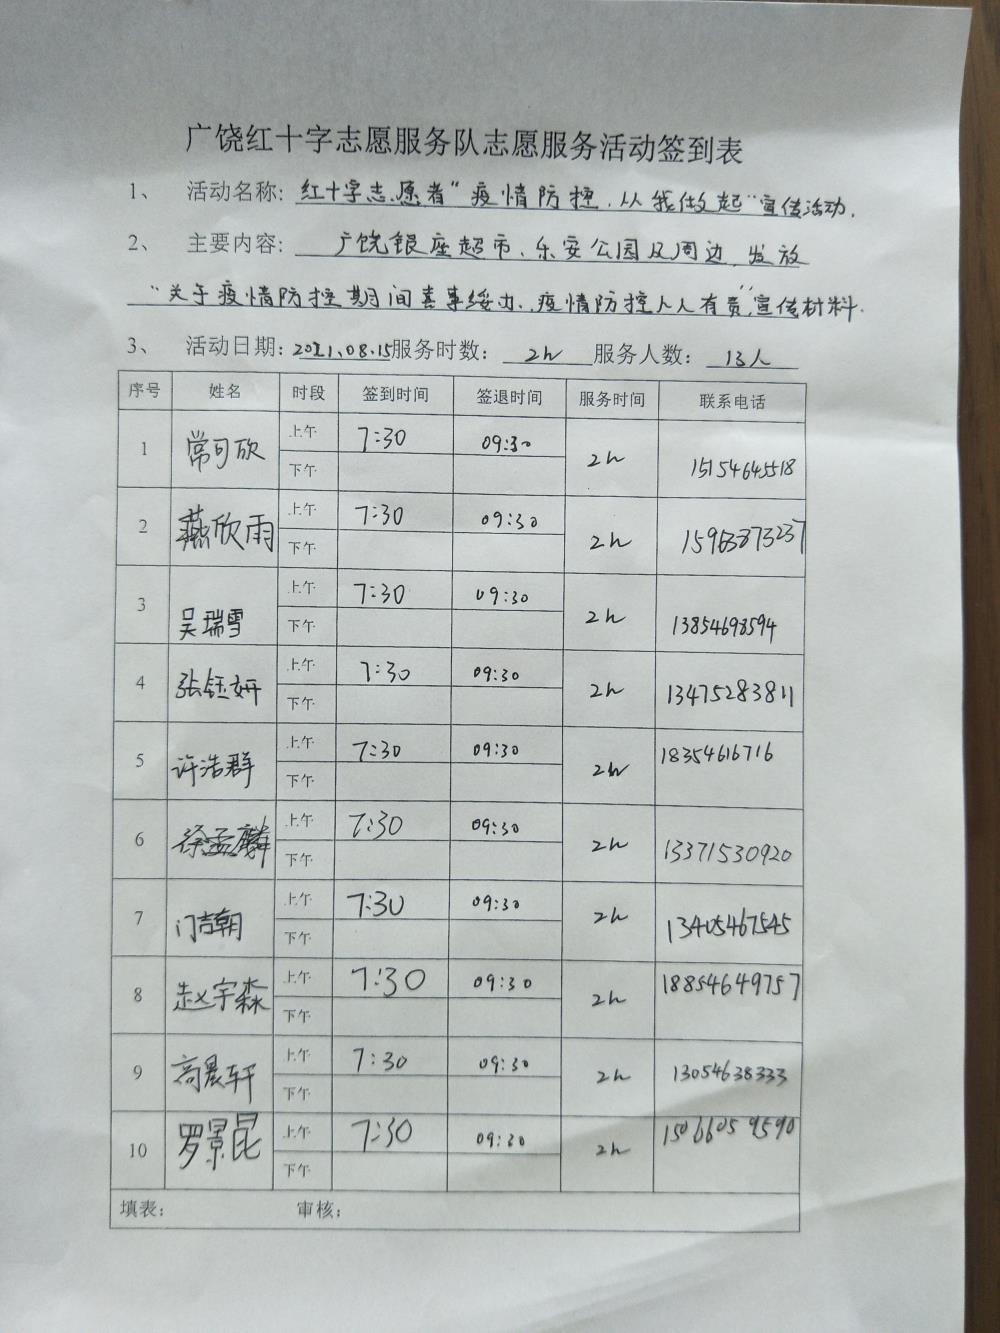 广饶红十字志愿服务队志愿服务活动签到表
1、 活动名称: 红十字志愿者“疫情防控，从我做起”宣传活动.
2、 主要内容: 广饶银座超市、乐安公园及周边，发放
“关于疫情防控期间喜事缓办、疫情防控人人有责”宣传材料.
3、 活动日期: 2021.08.15 服务时数: 2h 服务人数: 13人
序号 姓名 时段 签到时间 签退时间 服务时间 联系电话
1 常可欣 上午 7:30 09:30 2h 15154645518
下午
2 燕欣雨 上午 7:30 09:30 2h 15963873237
下午
3 吴瑞雪 上午 7:30 09:30 2h 13854698594
下午
4 张钰妍 上午 7:30 09:30 2h 13475283811
下午
5 许浩群 上午 7:30 09:30 2h 18354616716
下午
6 徐孟麟 上午 7:30 09:30 2h 13371530920
下午
7 门吉朝 上午 7:30 09:30 2h 13405467545
下午
8 赵宇森 上午 7:30 09:30 2h 18854649757
下午
9 高晨轩 上午 7:30 09:30 2h 13054638333
下午
10 罗景昆 上午 7:30 09:30 2h 15066059590
下午
填表: 审核: